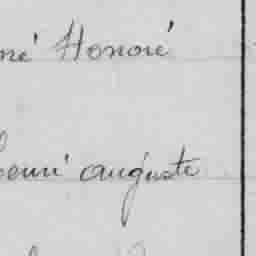 né Honoré
henri auguste